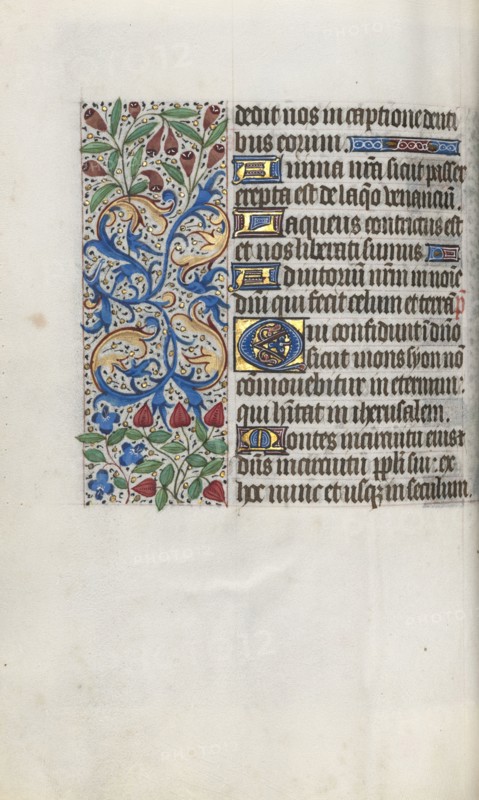 dedit nos in captione denti
bus eorum.
Anima nr̄a sicut passer
erepta est de laq̄o venanciū.
Laqueus contritus est
et nos liberati sumus
Adiutoriū nr̄m in noīe
dn̄i qui fecit celum et terrā. p̄
Qui confidunt i dn̄o
sicut mons syon nō
cōmouebitur in eternum:
qui hītat in iherusalem.
Montes in circuitu eius
dn̄s in circuitu ppl̄i sui: ex
hoc nunc et usq; in seculum.
PHOTO12